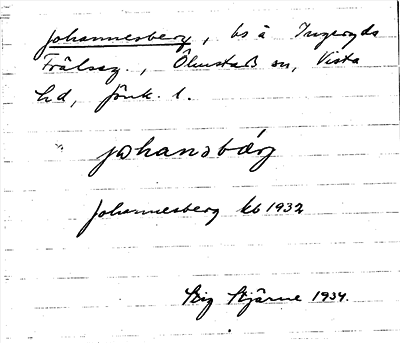 Johannesberg, bs å Ingeryds
Frälseg., Ölmstads sn, Vista
hd, Jönk. l.
johansbärj
Johannesberg kb 1932
Stig Stjärne 1934.